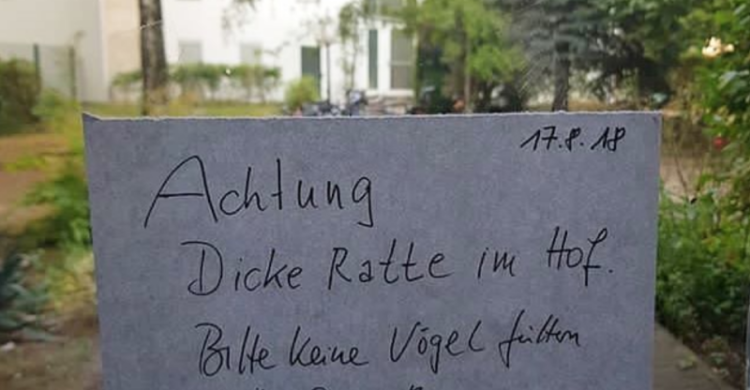 17.8.18
Achtung
Dicke Ratte im Hof.
Bitte keine Vögel füttern